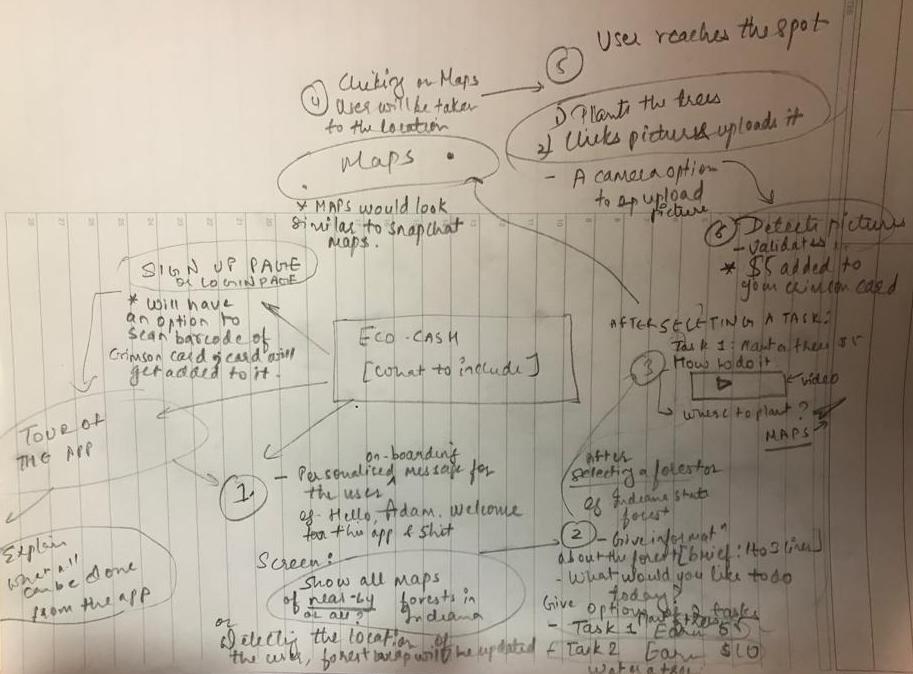 5 User reaches the spot
1) Plants the trees
2) Clicks picture & uploads it
- A camera option
to upload
picture
4 Clicking on Maps
User will be taken
to the location
Maps
* MAPS would look
similar to snapchat
maps.
6 Detects pictures
- validates
* $5 added to
your crimson card
SIGN UP PAGE
or LOGIN PAGE
* will have
an option to
scan barcode of
Crimson card & card will
get added to it.
ECO-CASH
[what to include]
AFTER SELECTING A TASK:
Task 1: Plant a tree $5
3 - How to do it
video
where to plant?
MAPS
TOUR OF
THE APP
Explain
what all
can be done
from the app
1. - Personalized on-boarding message for
the user
eg- Hello, Adam. Welcome
to this app & shit
Screen:
Show all maps
of near-by forests in
or all? Indiana
or
Detecting the location of
the user, forest map will be updated
After
selecting a forest or
eg Indiana state
forest
2 - Give informatn
about the forest [brief: 1 to 3 lines]
- What would you like to do
today?
Give options of 2 tasks
- Task 1 Earn 5$
- Task 2 Earn $10
Water a tree